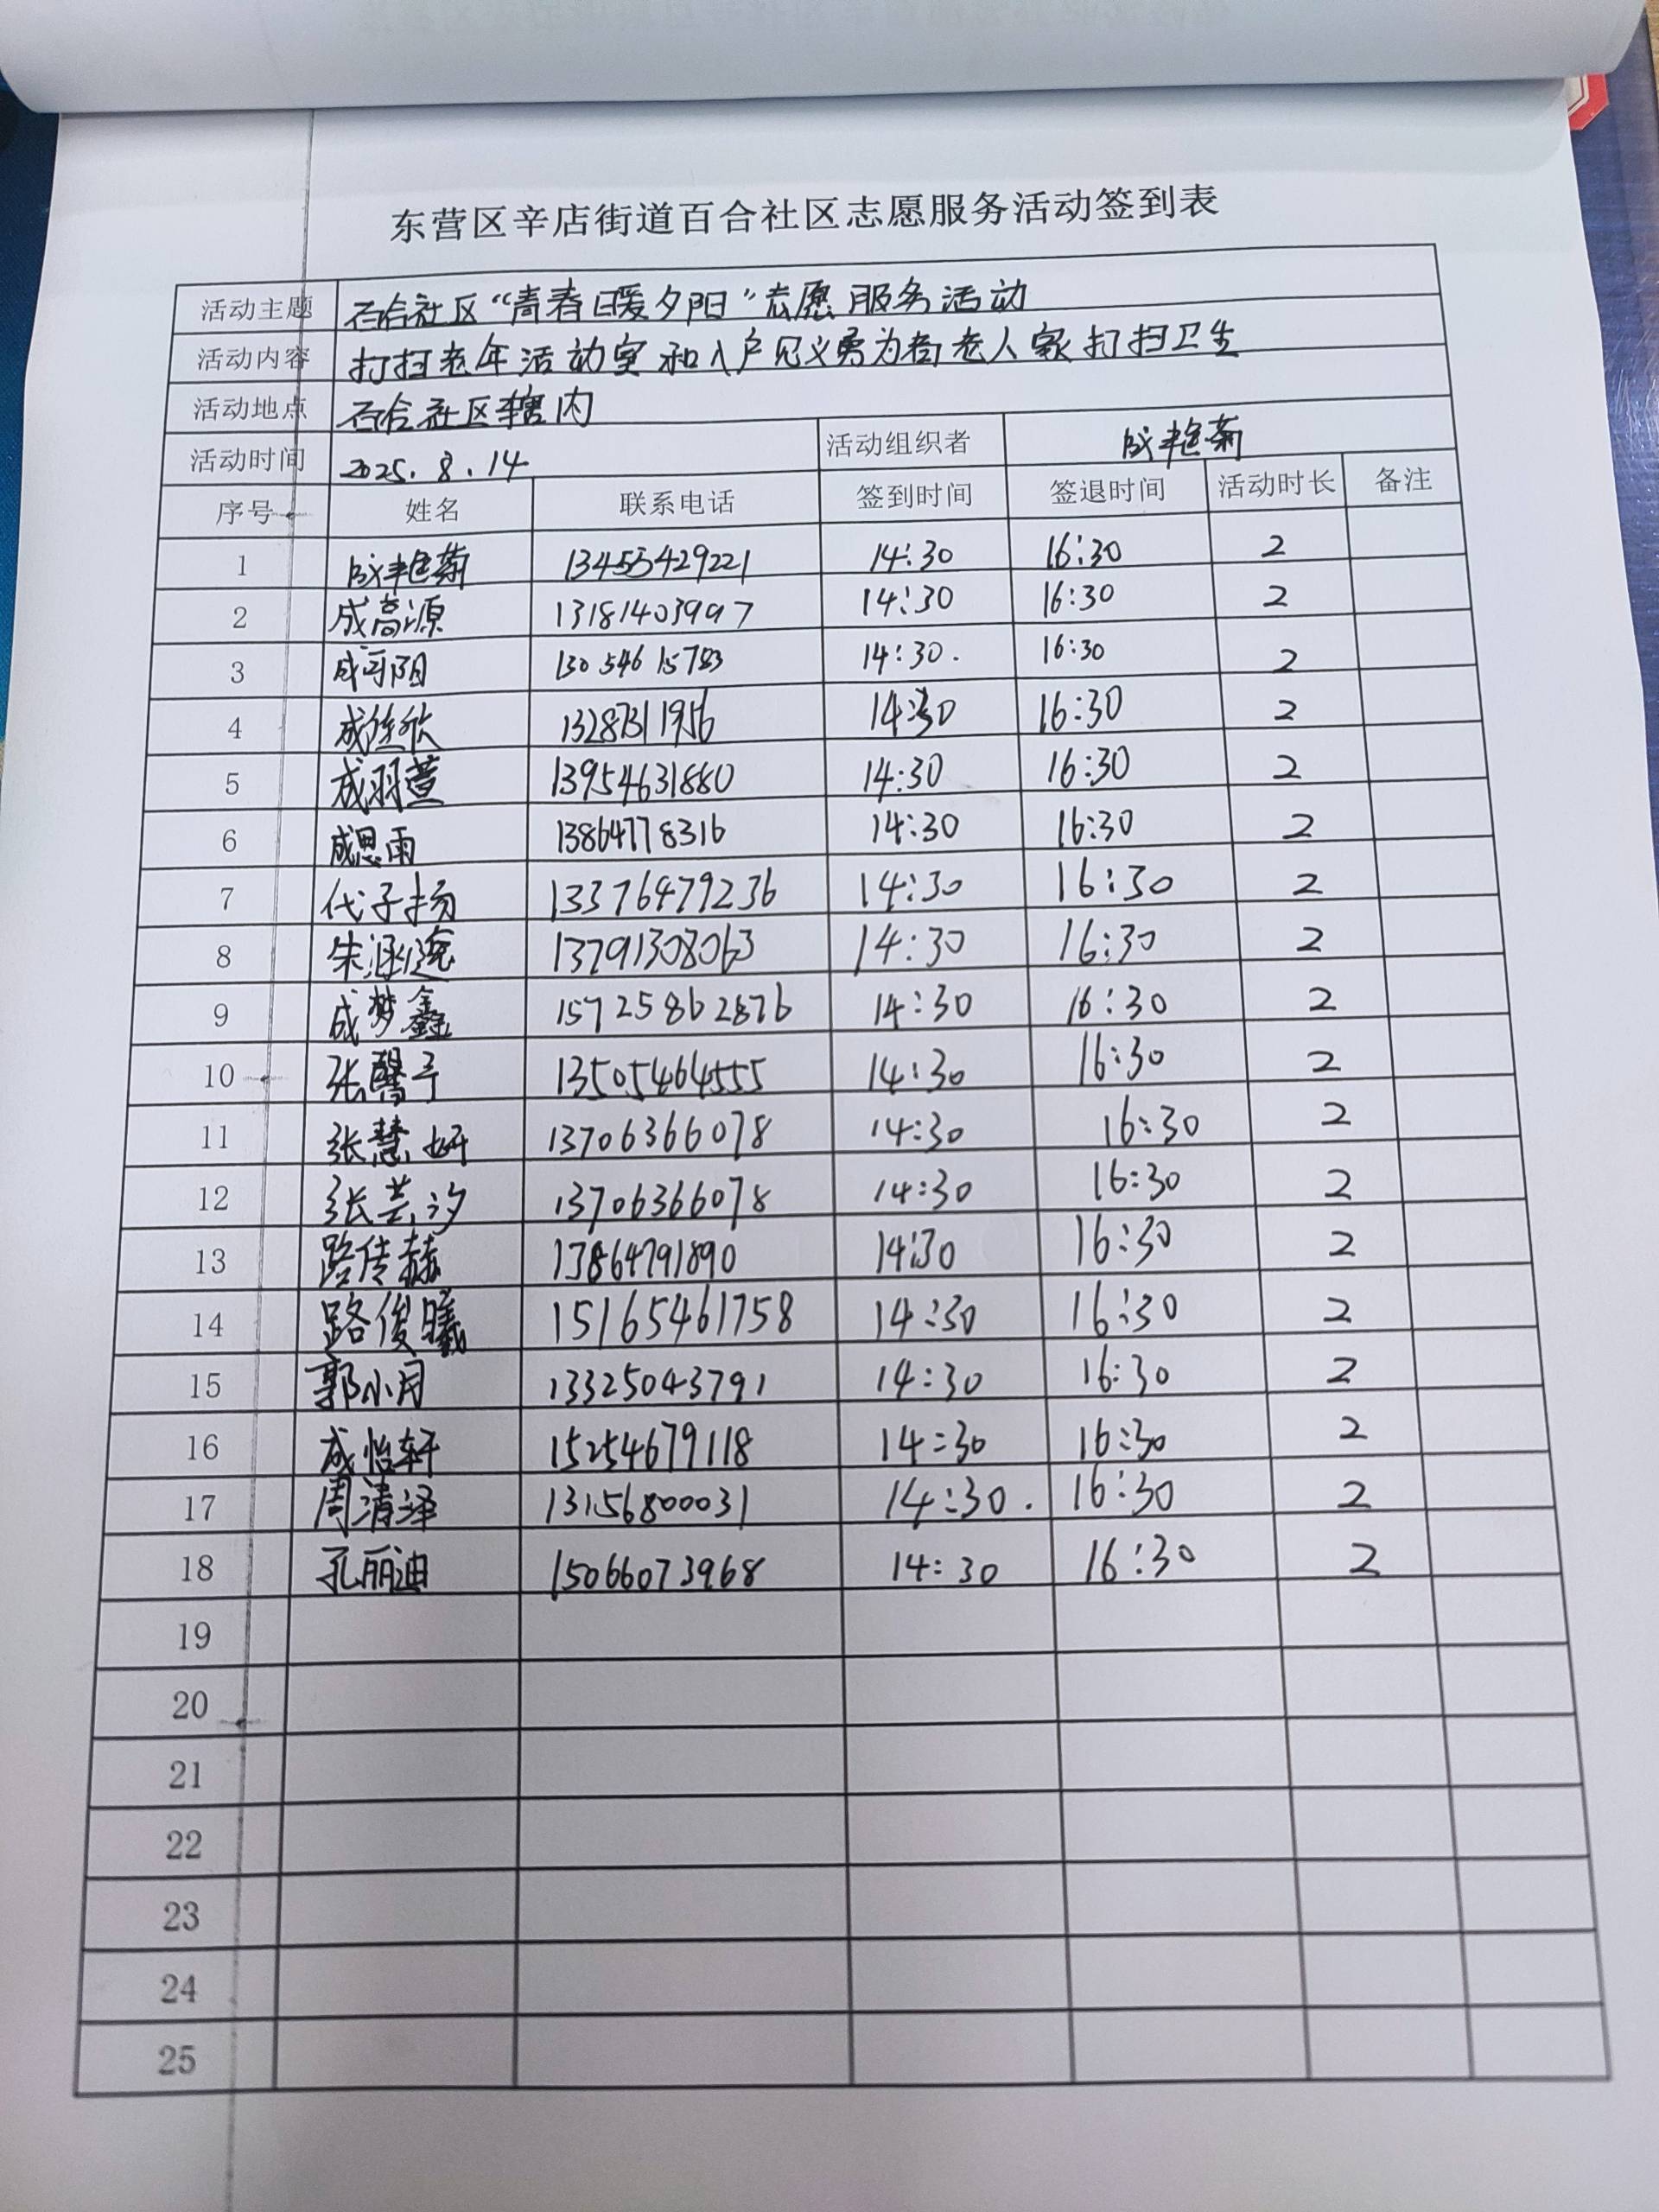 东营区辛店街道百合社区志愿服务活动签到表
活动主题 百合社区“青春暖夕阳”志愿服务活动
活动内容 打扫老年活动室和入户见义勇为者老人家打扫卫生
活动地点 百合社区辖内
活动时间 2025.8.14 活动组织者 成艳菊
序号 姓名 联系电话 签到时间 签退时间 活动时长 备注
1 成艳菊 13455429221 14:30 16:30 2
2 成高源 13181403997 14:30 16:30 2
3 13054615783 14:30. 16:30 2
4 13287311956 14:30 16:30 2
5 成羽萱 13954631880 14:30 16:30 2
6 成思雨 13864778316 14:30 16:30 2
7 代子扬 13376479236 14:30 16:30 2
8 朱涵逸 13791308063 14:30 16:30 2
9 成梦鑫 15725862876 14:30 16:30 2
10 张馨予 13505464555 14:30 16:30 2
11 张慧妍 13706366078 14:30 16:30 2
12 张芸汐 13706366078 14:30 16:30 2
13 路传赫 13864791890 14:30 16:30 2
14 路俊曦 15165461758 14:30 16:30 2
15 郭小月 13325043791 14:30 16:30 2
16 成怡轩 15254679118 14:30 16:30 2
17 周清泽 13156800031 14:30. 16:30 2
18 孔丽迪 15066073968 14:30 16:30 2
19
20
21
22
23
24
25